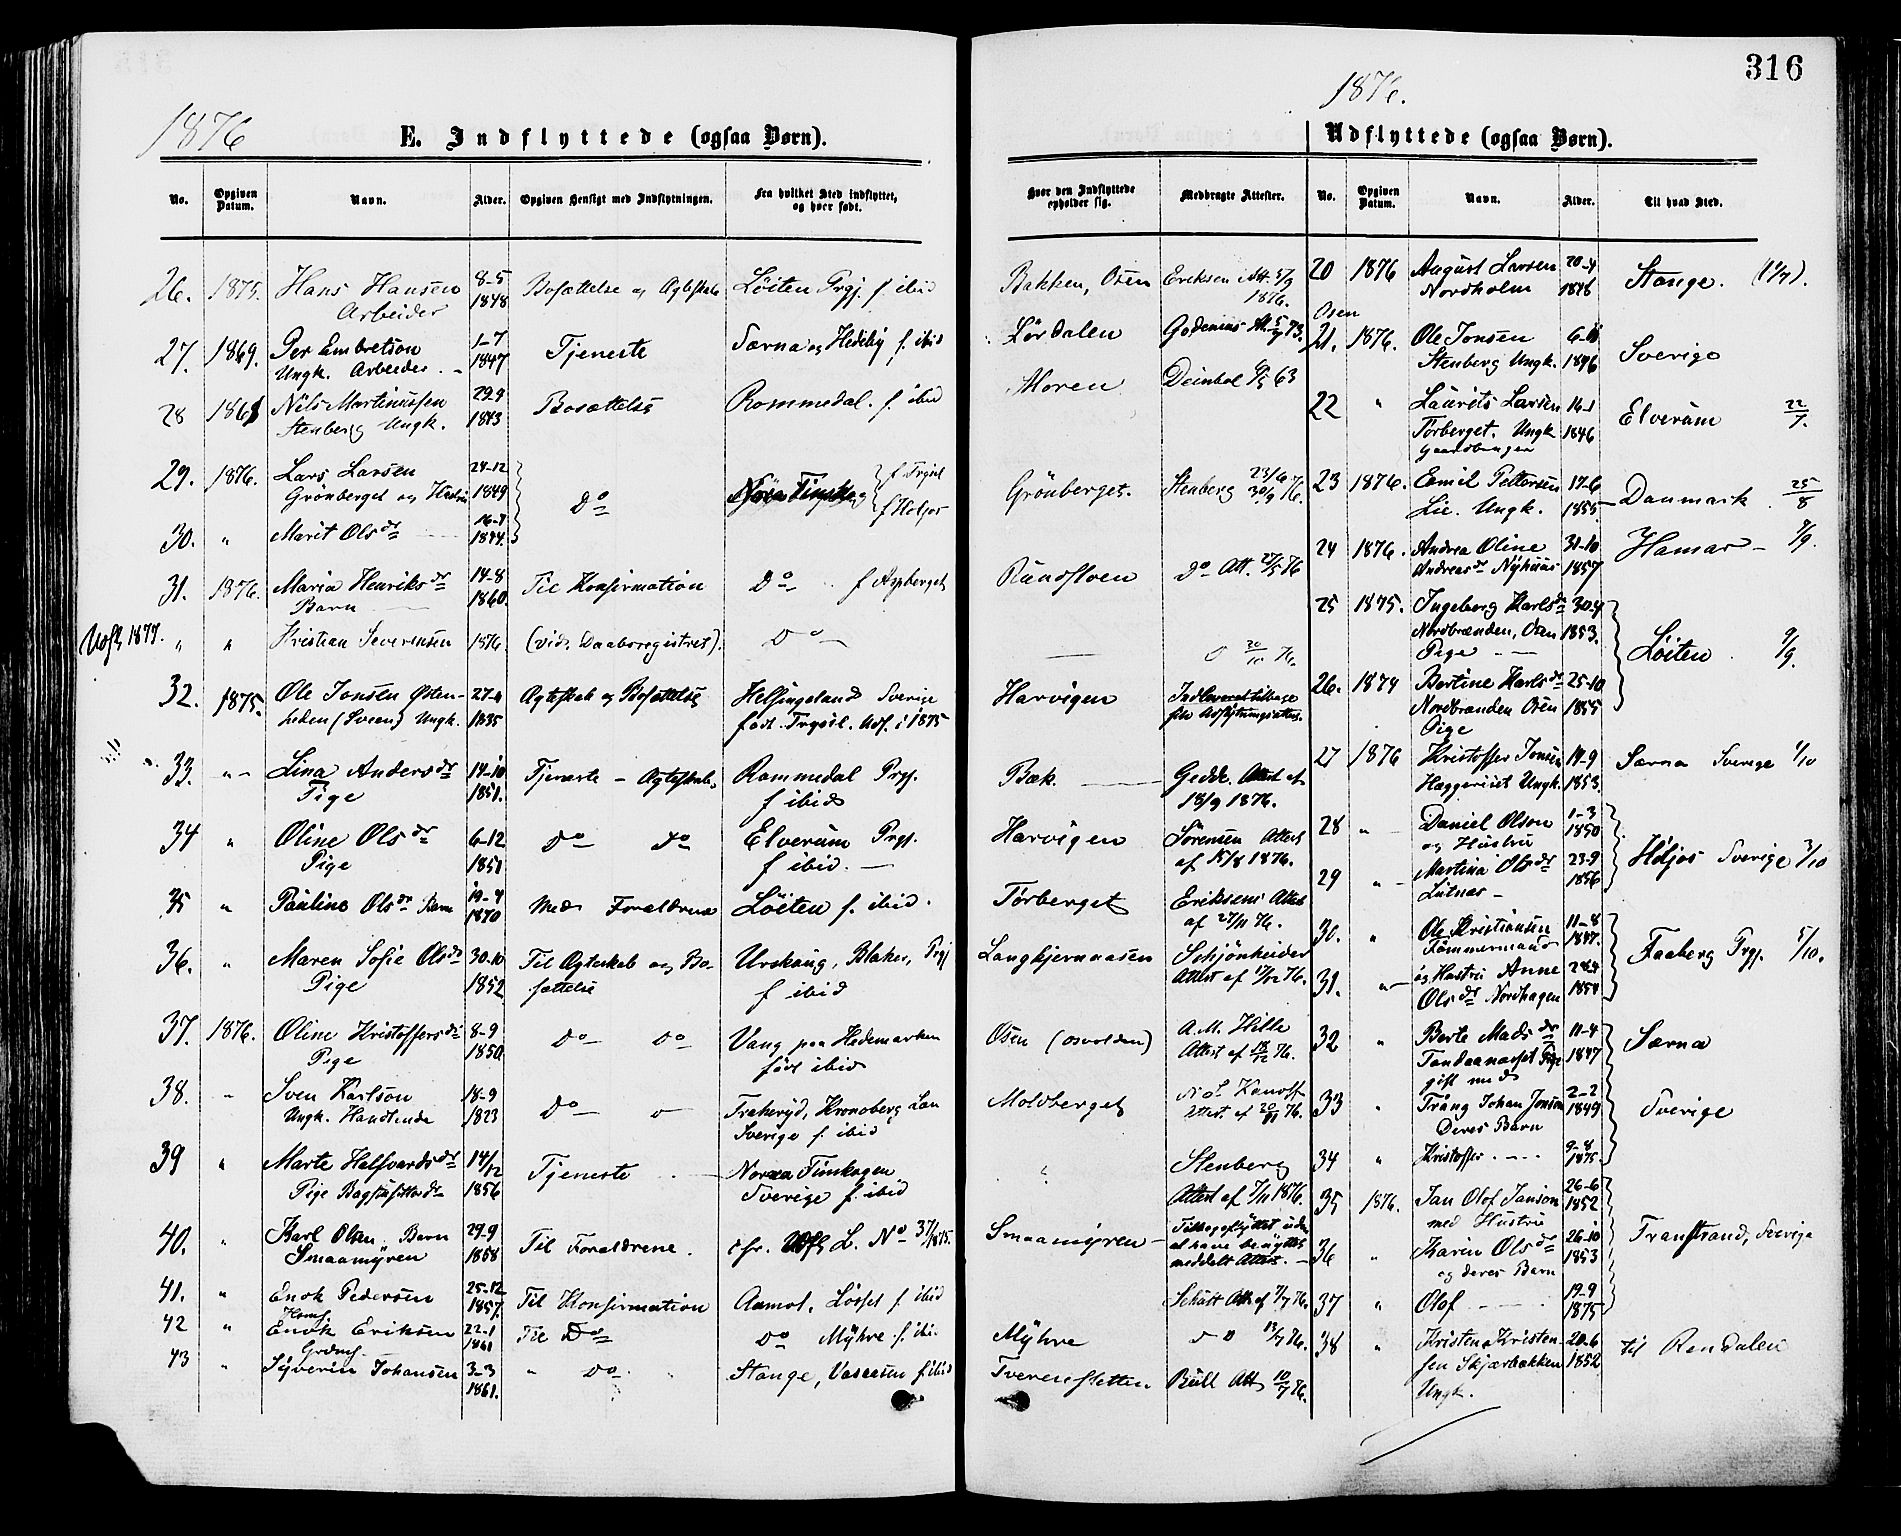 316
1876
1876.
E. Indflyttede (ogsaa Børn).
Udflyttede (ogsaa Børn).
No. Opgiven Datum. Navn. Alder. Opgiven Hensigt med Indflytningen. Fra hvilket Sted indflyttet, og hvor født.
Hvor den Indflyttede opholder sig. Medbragte Attester. No. Opgiven Datum. Navn. Alder. Til hvad Sted.
26. 1875. Hans Hansen 8-5 Bosættelse og Ægteskab Løiten Prgj. f. ibid
Arbeider 1848
27. 1869. Per Embretson 1-7 Tjeneste Særna og Hedeby f. ibid
Ungk. Arbeider 1847
28 Nils Martinussen 29-9 Bosættelse Rommedal. f. ibid
Stenberg Ungk. 1843
29. 1876. Lars Larsen 24-12 f Trysil
Grönberget og Hustru 1849 Do
30. " Marit Olsdr 16-7 1844. f Holjos
31. 1876. Maria Henriksdr 14-8 Til Konfirmation Do f Aspberget
Barn 1860.
Udfl 1877. " " Kristian Severensen 1876 (vide Daabsregistret). Do
32. 1875. Ole Jonsen Østen- 27-4 Ægteskab og Bosættelse Helsingeland Sverige
heden (Sveen) Ungk. 1835 født Trysil. Udf. i 1875
33. " Lina Andersdr 14-10 Tjeneste - Ægteskab Rommedal Prgj.
Pige 1851. f ibid
34 " Oline Olsdr 6-12 Do Do Elverum Prgj.
Pige 1851 f ibid.
35 " Pauline Olsdr Barn 19-4 1870 Med Forældrene Löiten f. ibid.
36. " Maren Sofie Olsdr 30-10 Til Ægteskab og Bo- Urskoug, Blaker, Prgj
Pige 1852 sættelse f ibid
37. 1876. Oline Kristoffersdr 8-9 Do Do Vang paa Hedemarken
Pige 1850. født ibid
38. " Sven Karlson 18-9 Do Traheryd, Kronoberg Län
Ungk. Handlende 1823 Sverige f. ibid
39 " Marte Halfvardsdr 14/12 Tjeneste Norra Finskogen
Pige 1856 Sverige f. ibid
40. " Karl Olsen. Barn 29-9 Til Forældrene. cfr. Udfl L. No 37/1875.
Smaamyren 1858
41. " Enok Pedersen 25-12 1857. Til Konfirmation Aamot, Løsset f. ibid
42 " Enok Eriksen 22-1 1861 Til Do Do Myhre f. ibi.
43 " Syverin Johansen 3-3 1861. " Do. Stange, Vasaasen f ibid
Bakken, Osen Eriksen Att. 5/9 1876. 20 1876 August Larsen 20-4 Stange.
Nordholm 1846
Osen
Lördalen 21. 1876. Ole Jonsen Sverige
Stenberg Ungk. 1846
Moren Deinbol 63 22 " Laurits Larsen 16-1 Elverum 22/7.
Törberget. Ungk 1846
Gaardbruger
Grönberget. Stenberg 23/6 30/9 76. 23 1876. Emil Pettersen 17-6 Danmark 25/8
Lie. Ungk. 1855
24 1876. Andrea Oline 31-10 Hamar
Andreasdr Nyhuus 1857
Rundfloen Do Att. 27/5 76
25 1875. Ingeborg Karlsdr 30-4
Nordbranden, Osen 1853.
Pige Löiten. 9/9.
20/10 76.
Harvigen Indleveret tilbage 26. 1874 Bertine Karlsdr 25-10
sin Udflytningsattest. Nordbranden Osen 1855
Pige
Bæk. Gedde. Attest af 27 1876 Kristoffer Jonsen 19-9 Særna Sverige 1/10
18/9 1876. Haggeriset Ungk. 1853.
Harvigen Sörensen Attest 28 " Daniel Olson 1-3 1850
af 15/8 1876. og Hustru Höljos Sverige 3/10
29 " Martina Olsdr 23-9 1856
Lutnæs
Törberget Eriksens Attest
af 27/11 76. 30. " Ole Kristiansen 11-8 1847.
Tömmermand Faaberg Prgj. 5/10.
Langkjernaasen Schjönheider
Attest af 76. 31. " og Hustru Anne
Olsdr Nordhagen 1854
Osen (Osvolden) A. M. Hille 32 " Berte Madsdr 11-4 1847 Særna
Attest af 76. Tandaanæset Pige
gift med
Moldberget Attest. af 76. 33 " Trång Johan Jonson 2-2 1849 Sverige
Deres Barn
" Stenberg 34 " Kristoffer 9-8 1875
Attest af 7/11 1876. 35 1876. Jan Olof Janson 26-6 1852
med Hustru Transtrand, Sverige
Smaamyren Tilbageflyttet uden
at have benyttet
meddelt Attest. 36 " Karin Olsdr 26-10 1853
og deres Barn
Schütt Att. af 76. 37 " Olof 19-9 1875
Myhre Do 13/7 76. 38 " Kristen Kristen- 20-6 til Rendalen
sen Skjærbækken 1852
Tverenfletten Bull Att 10/7 76. Ungk.